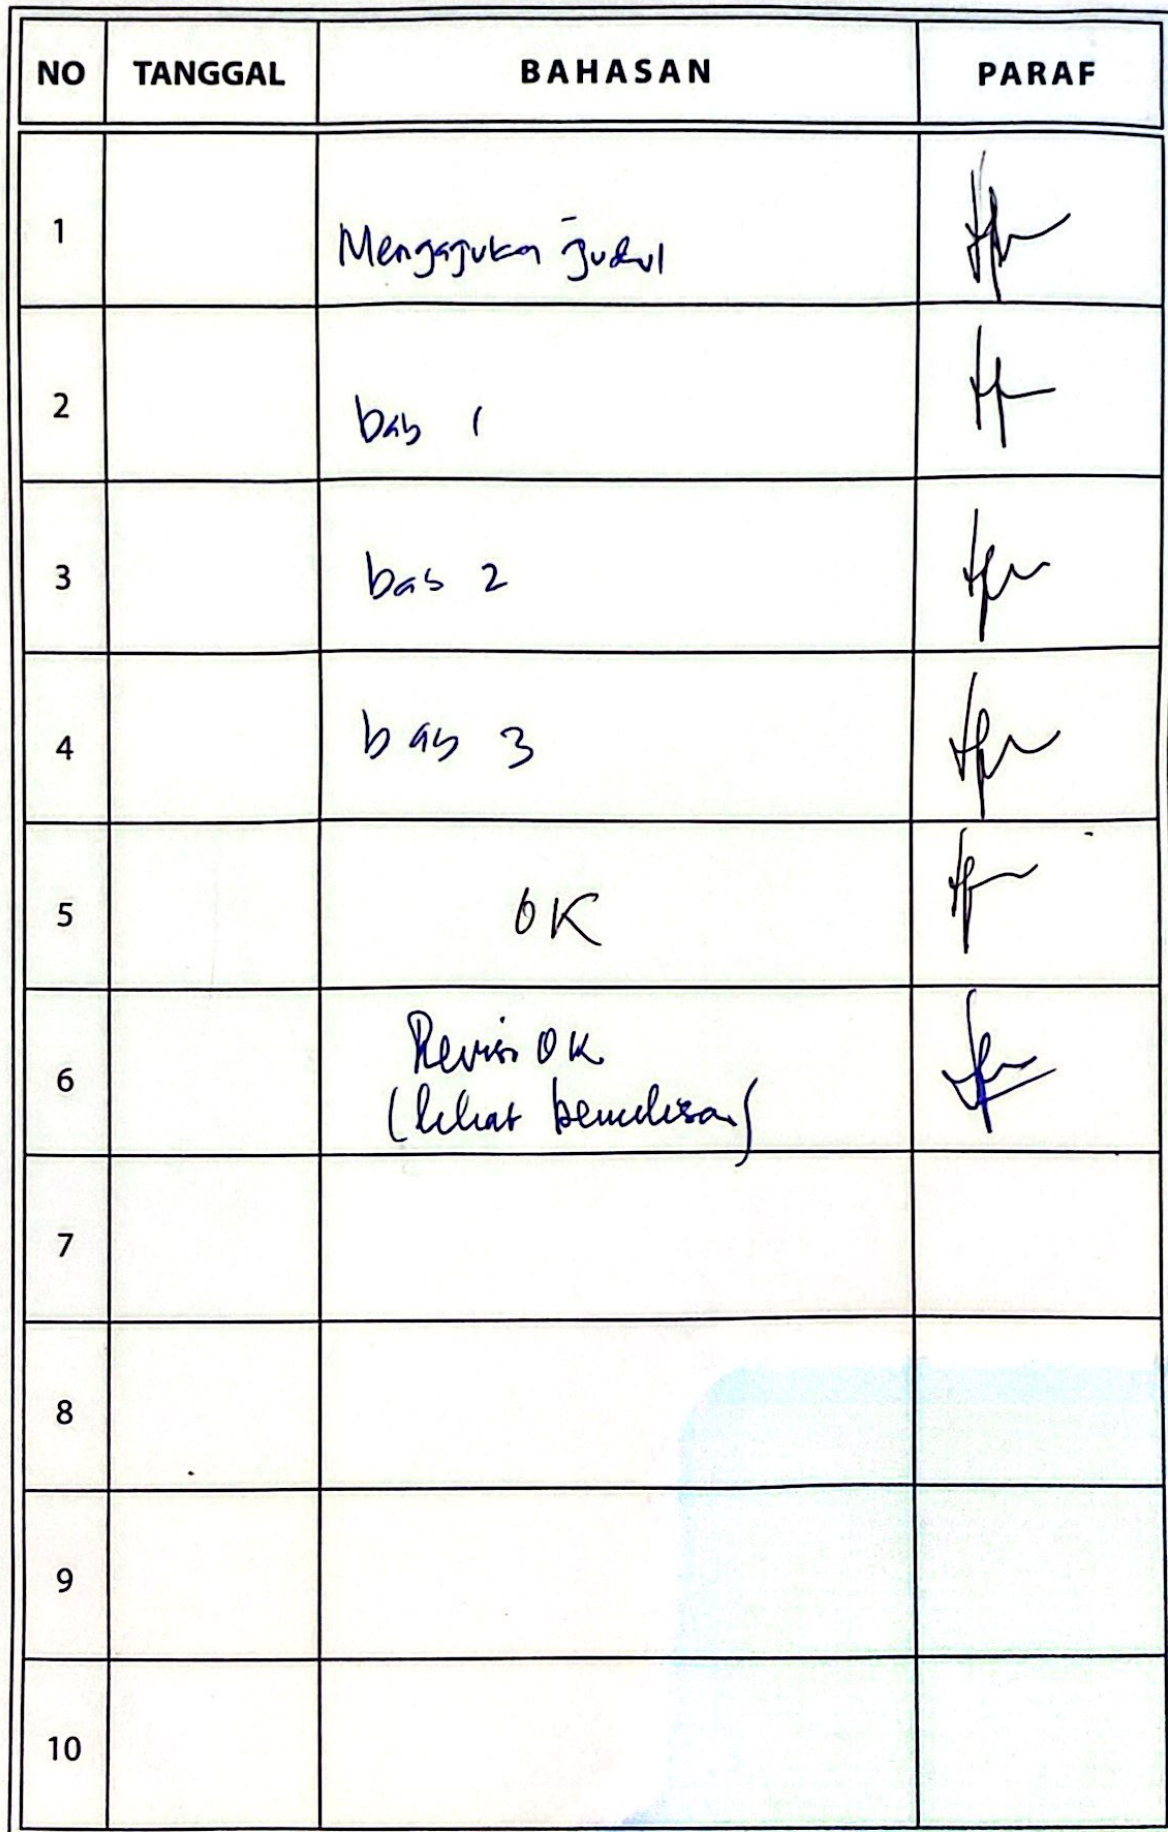 NO TANGGAL BAHASAN PARAF
1 Mengajukan judul
2 bab 1
3 bab 2
4 bab 3
5 OK
6 Revisi OK
(lihat penulisan)
7
8
9
10